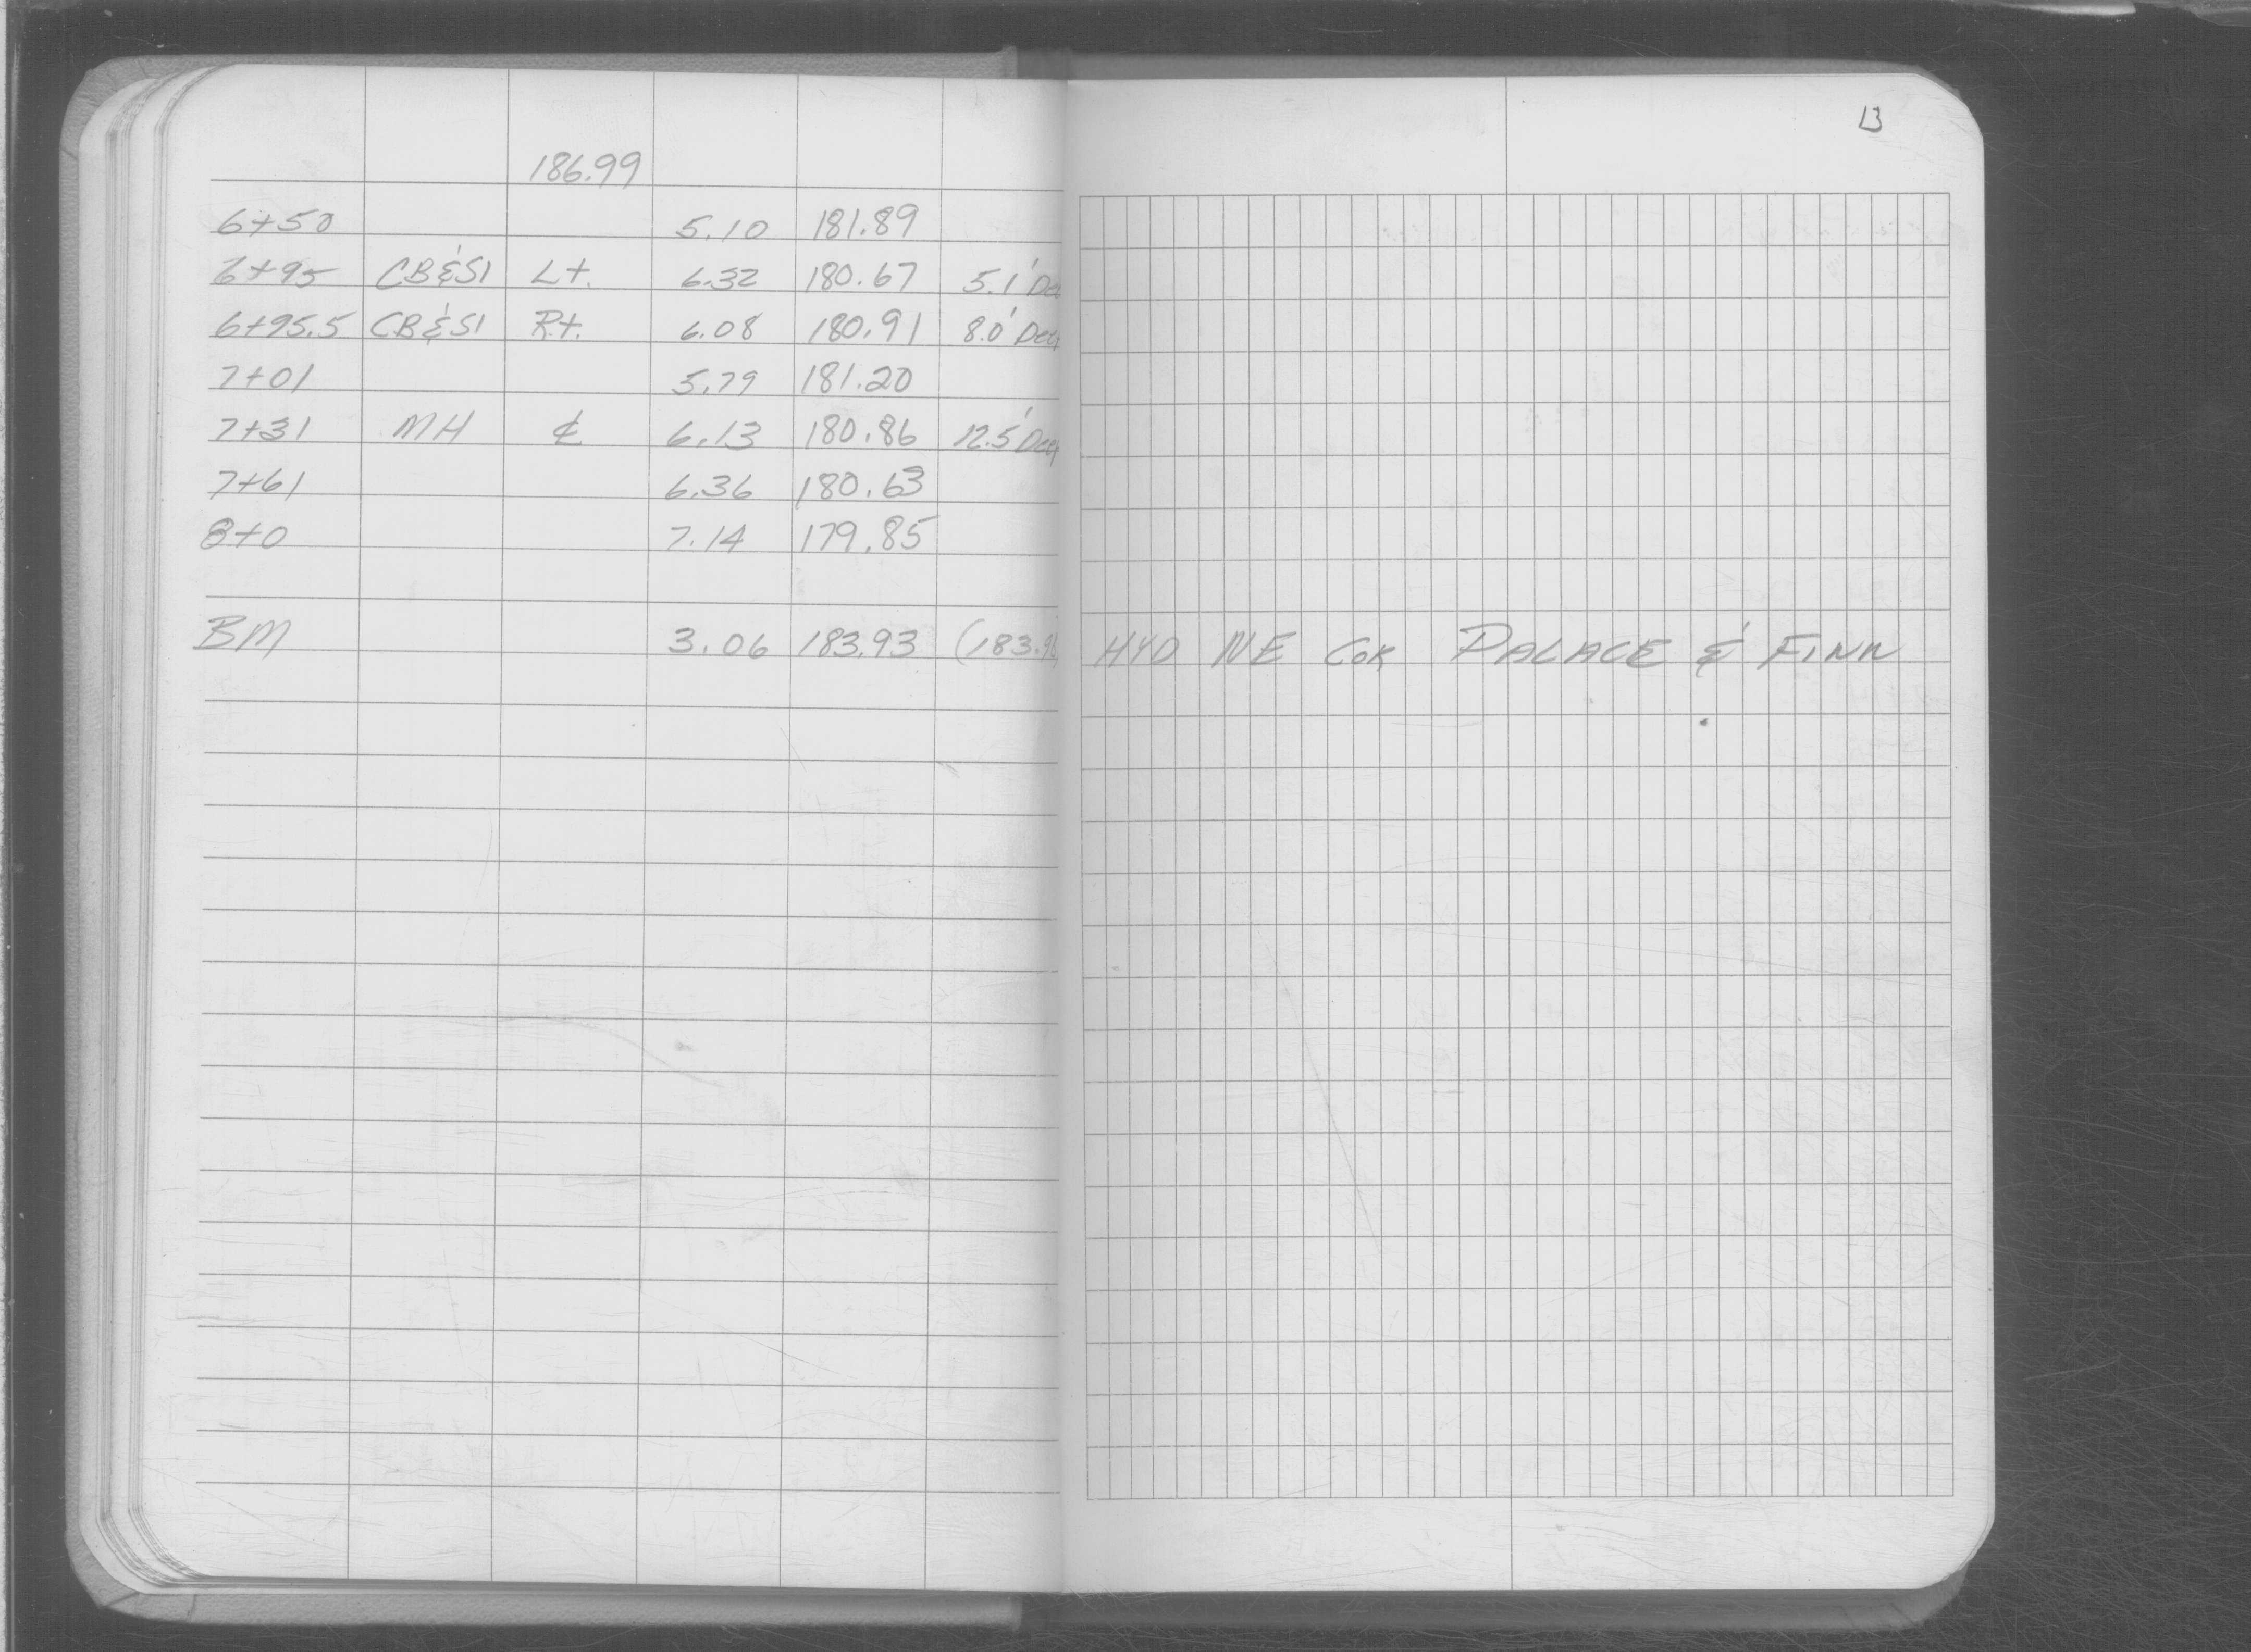 13
186.99
6+50 5.10 181.89
6+95 CB&SI Lt. 6.32 180.67 5.1'
6+95.5 CB&SI Rt. 6.08 180.91 8.0' Deep
7+01 5.79 181.20
7+31 MH ℄ 6.13 180.86 12.5' Deep
7+61 6.36 180.63
8+0 7.14 179.85
BM 3.06 183.93 HYD NE COR PALACE & FINN